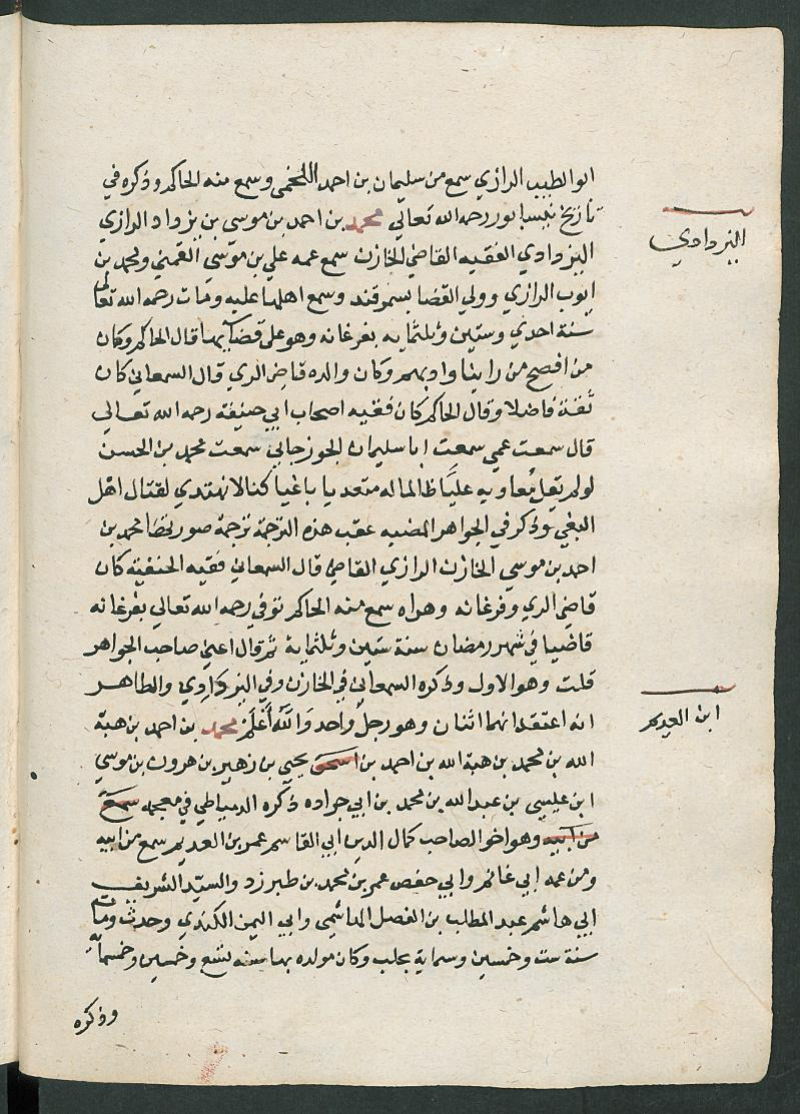 ابو الطيب الرازي سمع من سليمان بن احمد اللخمي وسمع منه الحاكم وذكره في
تاريخ نيسابور رحمه الله تعالى محمد بن احمد بن موسى بن يزداد الرازي
اليزدادي
اليزدادي الفقيه القاضي الخازن سمع عمه علي بن موسى القمي ومحمد بن
ايوب الرازي وولي القضا بسمرقند وسمع اهلها عليه ومات رحمه الله تعالى
سنة احدي وستين وثلثماية بفرغانه وهو على قضآيها قال الحاكم وكان
من افصح من راينا وادبهم وكان والده قاضي الري قال السمعاني كان
ثقة فاضلا وقال الحاكم كان فقيه اصحاب ابي حنيفة رحمه الله تعالى
قال سمعت عمي سمعت ابا سليمان الجوزجاني سمعت محمد بن الحسن
لو لم يقاتل معاويه علياً ظالما له متعديا باغيا كنا لا نهتدي لقتال اهل
البغي وذكر في الجواهر المضيه عقب هذه الترجمة ترجمة صورتها محمد بن
احمد بن موسى الخازن الرازي القاضي قال السمعاني فقيه الحنفية كان
قاضي الري وفرغانه وهراه سمع منه الحاكم توفي رحمه الله تعالى بفرغانه
قاضيا في شهر رمضان سنة ستين وثلثماية ثم قال اعني صاحب الجواهر
قلت وهو الاول وذكره السمعاني في الخازن وفي اليزدادي والظاهر
انه اعتقد انهما اثنان وهو رجل واحد والله أعلم محمد بن احمد بن هبة
ابن العديم
الله بن محمد بن هبة الله بن احمد بن اسحق يحيي بن زهير بن هرون بن موسى
ابن عيسى بن عبد الله بن محمد بن ابي جراده ذكره الدمياطي في معجمه سمع
من ابيه وهو اخو الصاحب كمال الدين ابي القاسم عمر بن العديم سمع من ابيه
ومن عمه ابي غانم وابي حفص عمر بن محمد بن طبرزد والسيد الشريف
ابي هاشم عبد المطلب بن الفضل الهاشمي وابي اليمن الكندي وحدث ومات
سنة ست وخمسين وستماية بحلب وكان مولده بها سنه تسع وخمسين وخمسمايه
وذكره